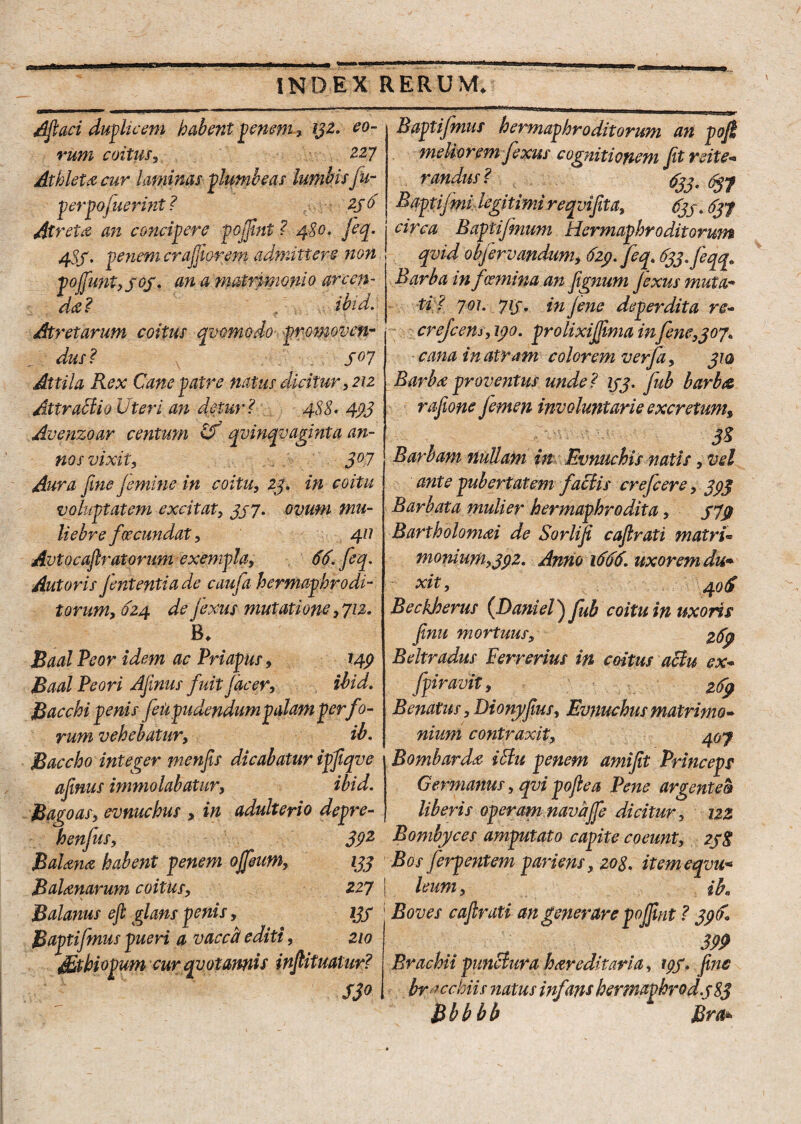 INDEX RERUM.
Aſtaci duplicem habent penem, 132. eo-
rum coitus, 227
Athletæ cur laminas plumbeas lumbis ſu-
perpoſuerint? 256
Atretæ an concipere poſſint? 480. ſeq.
485. penem craſſiorem admittere non
poſſunt, 505. an a matrimonio arcen-
dæ? ibid.
Atretarum coitus qvomodo promoven-
dus? 507
Attila Rex Cane patre natus dicitur, 212
Attractio Uteri an detur? 488. 493
Avenzoar centum & qvinqvaginta an-
nos vixit, 307
Aura ſine ſemine in coitu, 23. in coitu
voluptatem excitat, 357. ovum mu-
liebre fœcundat, 411
Avtocaſtratorum exempla, 66. ſeq.
Autoris ſententia de cauſa hermaphrodi-
torum, 624 de ſexus mutatione, 712.
B.
Baal Peor idem ac Priapus, 149
Baal Peori Aſinus fuit ſacer, ibid.
Bacchi penis ſeu pudendum palam per fo-
rum vehebatur, ib.
Baccho integer menſis dicabatur ipſiqve
aſinus immolabatur, ibid.
Bagoas, evnuchus, in adulterio depre-
henſus, 392
Balænæ habent penem oſſeum, 133
Balænarum coitus, 227
Balanus eſt glans penis, 135
Baptiſmus pueri a vaccâ editi, 210
Æthiopum cur qvotannis inſtituatur?
530
Baptiſmus hermaphroditorum an poſt
meliorem ſexus cognitionem ſit reite-
randus? 633. 637
Baptiſmi legitimi reqviſita, 635. 637
circa Baptiſmum Hermaphroditorum
qvid obſervandum, 629. ſeq. 633. ſeqq.
Barba in fœmina an ſignum ſexus muta-
ti? 701. 715. in ſene deperdita re-
creſcens, 190. prolixiſſima in ſene, 307.
cana in atram colorem verſa, 310
Barbæ proventus unde? 153. ſub barbæ
raſione ſemen involuntarie excretum,
38
Barbam nullam in Evnuchis natis, vel
ante pubertatem factis creſcere, 393
Barbata mulier hermaphrodita, 579
Bartholomæi de Sorliſi caſtrati matri-
monium, 392. Anno 1666. uxorem du-
xit, 406
Beckherus (Daniel) ſub coitu in uxoris
ſinu mortuus, 269
Beltradus Ferrerius in coitus actu ex-
ſpiravit, 269
Benatus, Dionyſius, Evnuchus matrimo-
nium contraxit, 407
Bombardæ ictu penem amiſit Princeps
Germanus, qvi poſtea Pene argenteo
liberis operam navâſſe dicitur, 122
Bombyces amputato capite coeunt, 258
Bos ſerpentem pariens, 208. item eqvu-
leum, ib.
Boves caſtrati an generare poſſint? 396.
399
Brachii punctura hæreditaria, 195. ſine
bracchiis natus infans hermaphrod. 583
Bbbbb Bra-